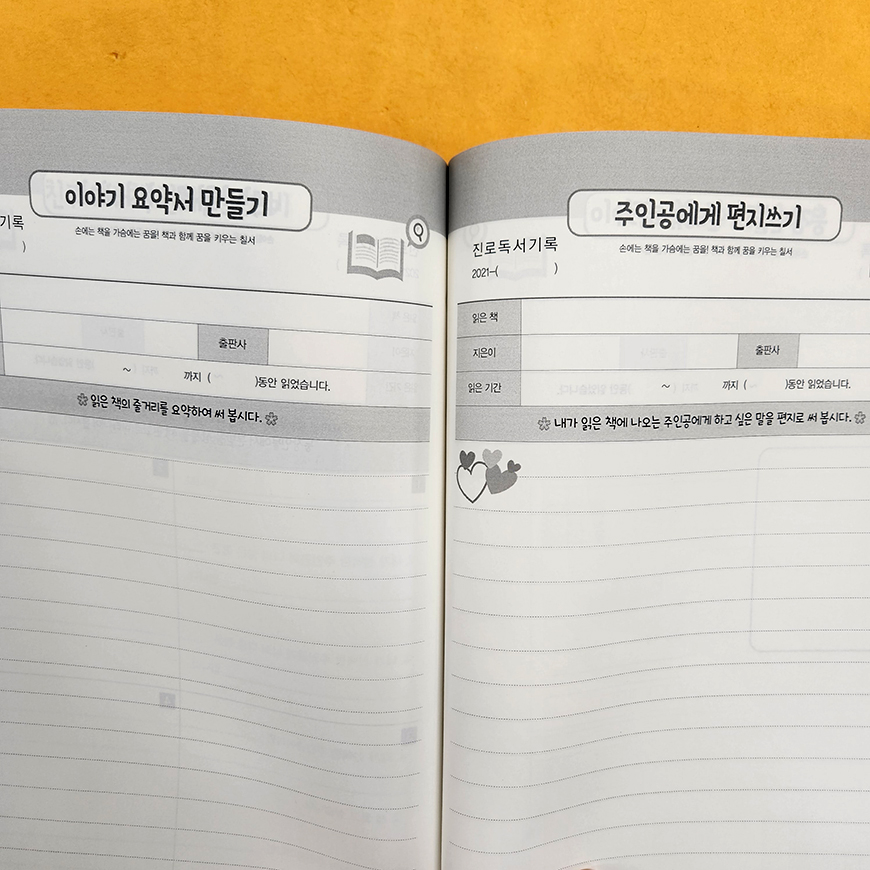 이야기 요약서 만들기
기록
손에는 책을 가슴에는 꿈을! 책과 함께 꿈을 키우는 칠서
)
출판사
~ 까지 ( )동안 읽었습니다.
읽은 책의 줄거리를 요약하여 써 봅시다.
주인공에게 편지쓰기
진로독서기록
손에는 책을 가슴에는 꿈을! 책과 함께 꿈을 키우는 칠서
2021-( )
읽은 책
지은이 출판사
읽은 기간 ~ 까지 ( )동안 읽었습니다.
내가 읽은 책에 나오는 주인공에게 하고 싶은 말을 편지로 써 봅시다.